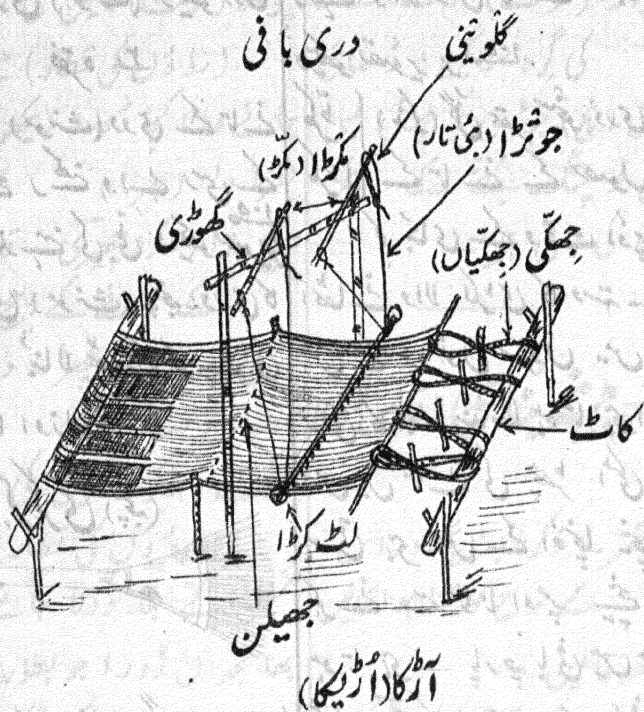 دری بافی
گلوٹینی
جوترا (بئی تار)
مکڑا (مکّڑ)
گھوڑی
جھکّی (جھکیّاں)
کاٹ
لٹ کڑا
جھیلن
آڑکا (اُڑیکا)